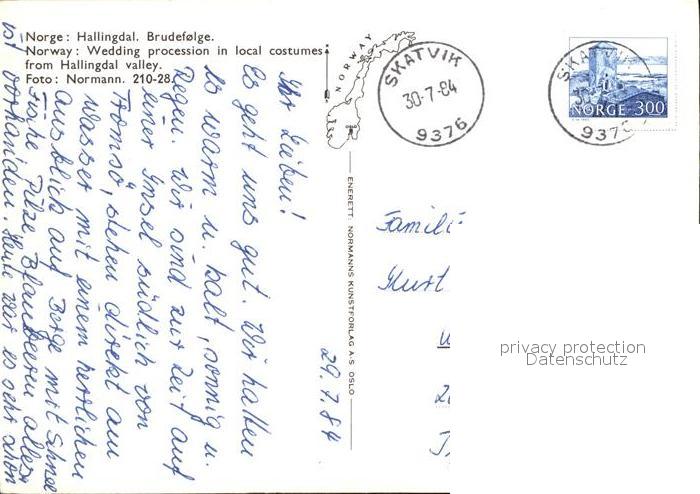 Norge: Hallingdal. Brudefølge.
Norway: Wedding procession in local costumes
from Hallingdal valley.
Foto: Normann. 210-28.
NORWAY
SKATVIK
30-7-84
9376
SKATVIK
30-7
9376
NORGE 300
ENERETT: NORMANNS KUNSTFORLAG A·S OSLO
29.7.84
Ihr Lieben!
Es geht uns gut. Wir hatten
es warm u. kalt, sonnig u.
Regen. Wir sind zur Zeit auf
einer Insel südlich von
Tromsö, stehen direkt am
Wasser mit einem herrlichen
Ausblick auf Berge mit Schnee
Fische Pilze Blaubeeren alles
ist vorhanden. Heute war es sehr schön
Famili
Kurt
privacy protection
Datenschutz